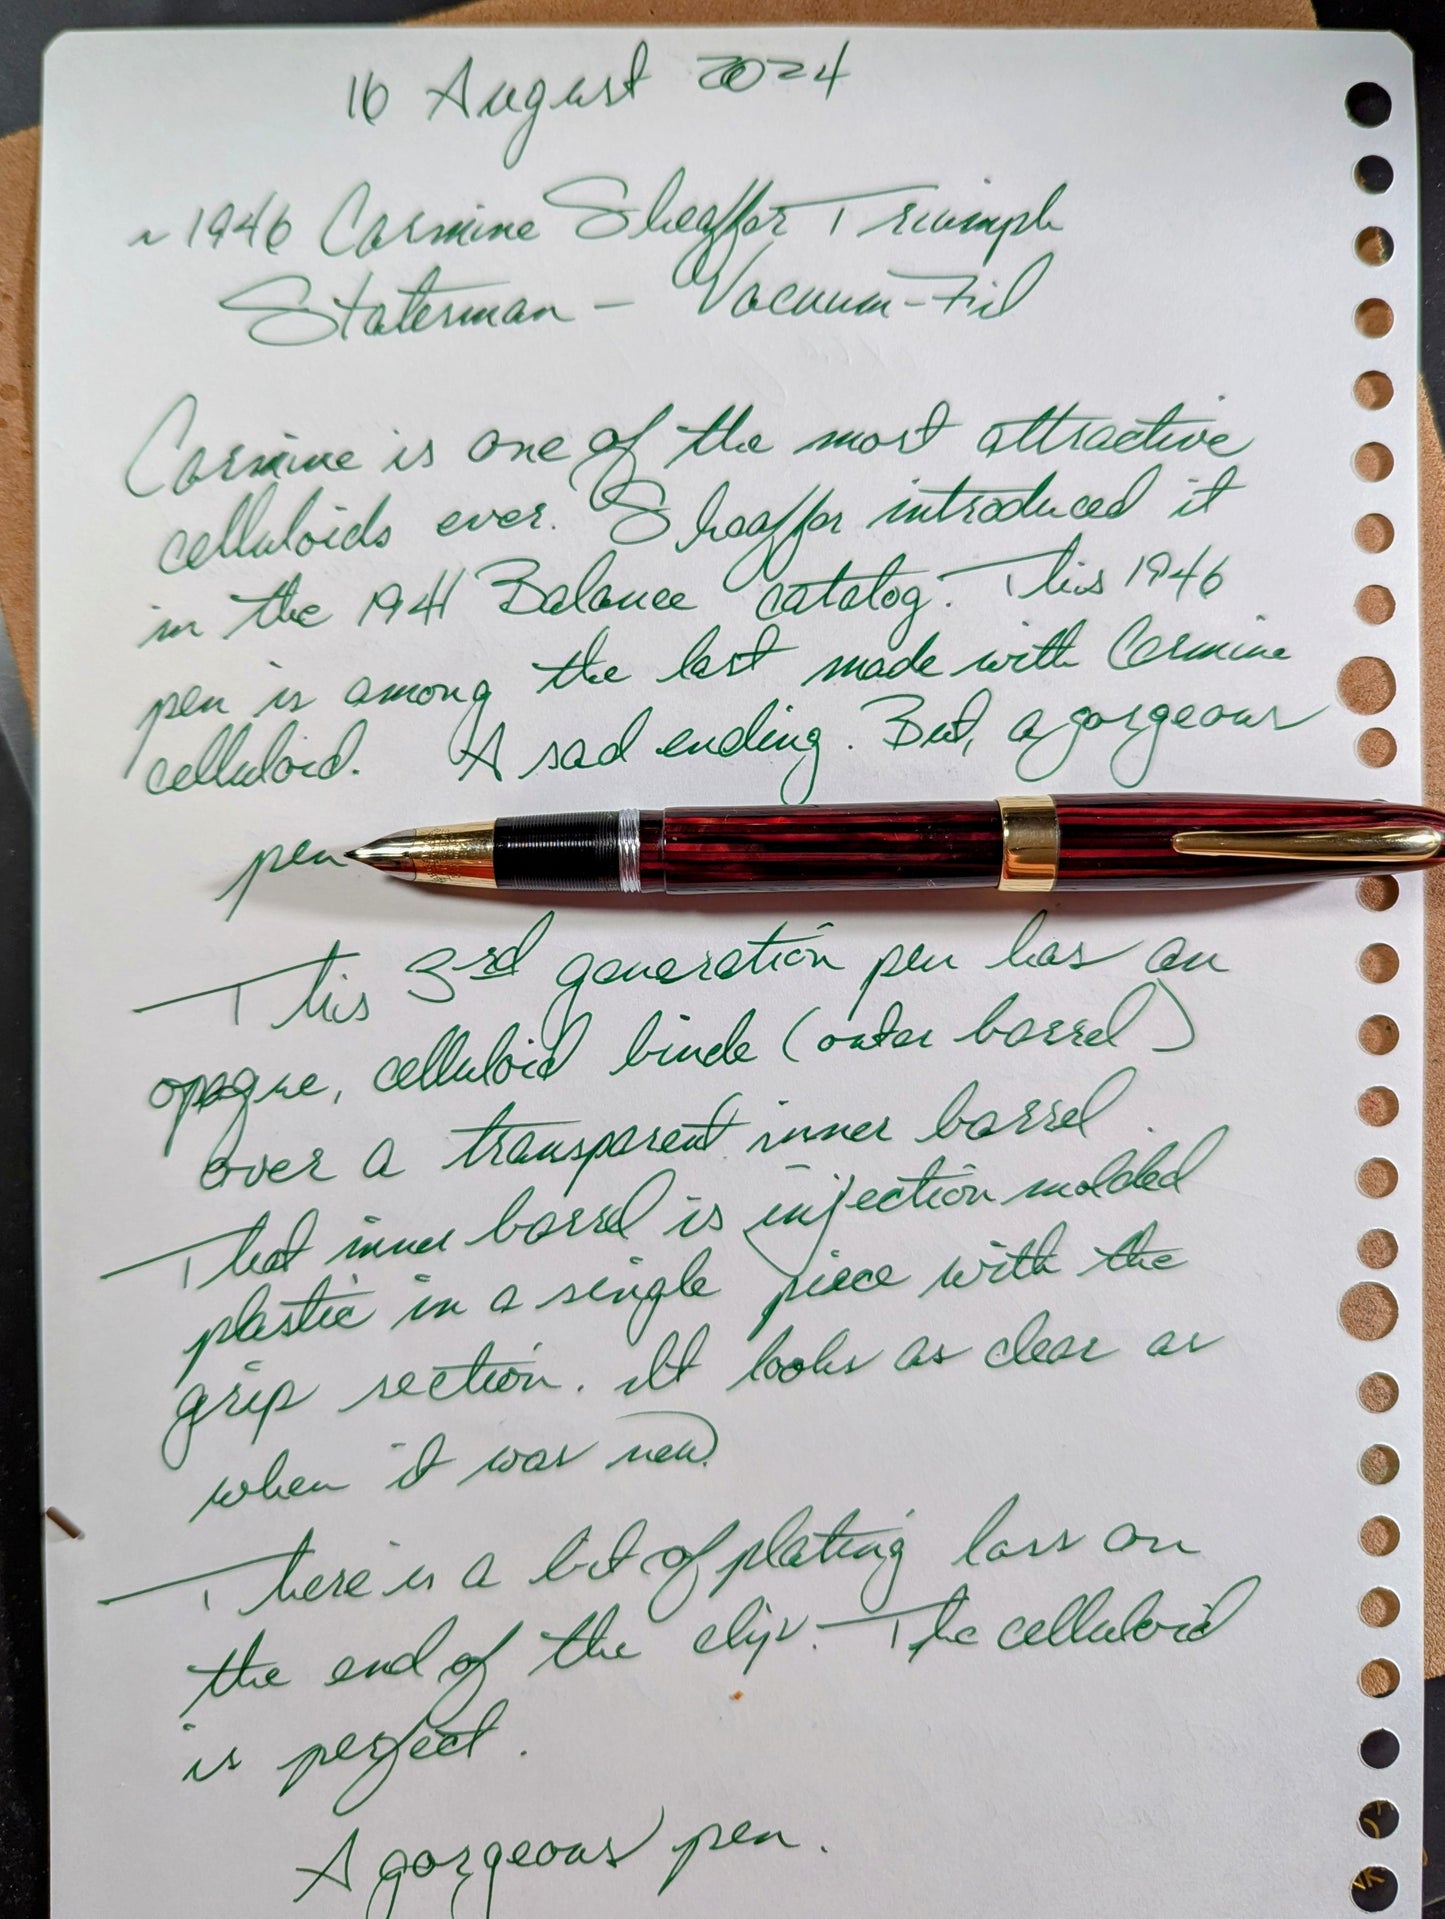 16 August 2024
~1946 Carmine Sheaffer Triumph
Statesman - Vacuum-Fil
Carmine is one of the most attractive
celluloids ever. Sheaffer introduced it
in the 1941 Balance catalog. This 1946
pen is among the last made with Carmine
celluloid. A sad ending. But, a gorgeous
pen
This 3rd generation pen has an
opaque, celluloid binde (outer barrel)
over a transparent inner barrel.
That inner barrel is injection molded
plastic in a single piece with the
grip section. It looks as clear as
when it was new.
There is a bit of plating loss on
the end of the clip. The celluloid
is perfect.
A gorgeous pen.